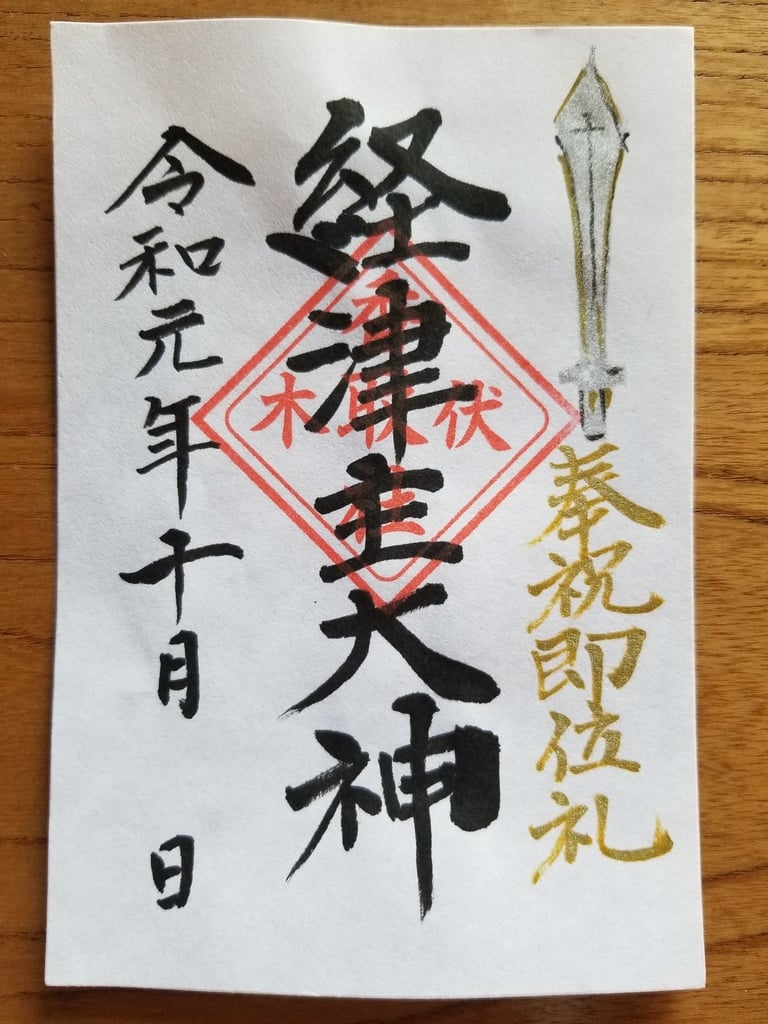 奉祝即位礼
経津主大神
伏木
香取社
令和元年十月 日